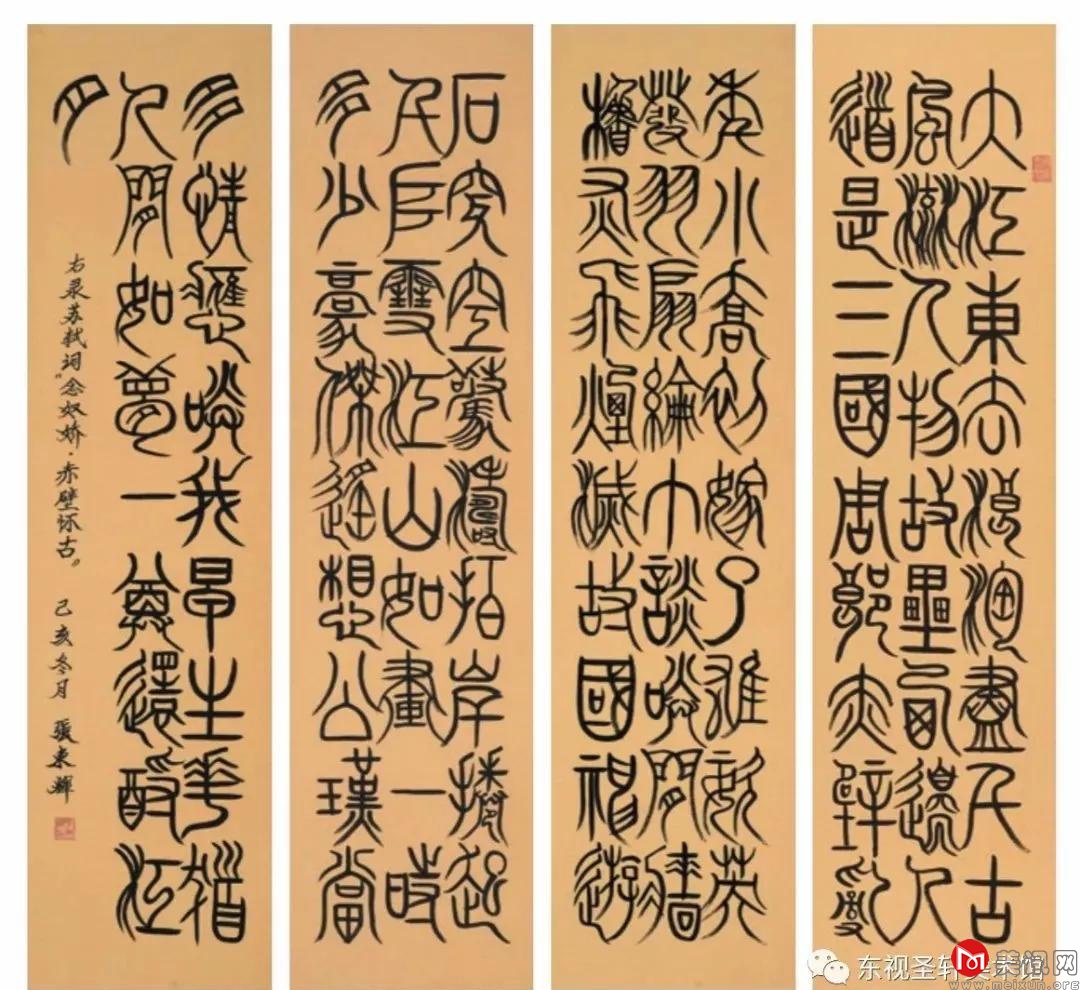 大江東去浪淘盡千古
風流人物故壘西邊人
道是三國周郎赤壁亂
年小喬初嫁了雄姿英
發羽扇綸巾談笑間檣
櫓灰飛煙滅故國神遊
石穿空驚濤拍岸捲起
千𠂤雪江山如畫一時
多少豪傑遙想公瑾當
多情應笑我早生華髮
人間如夢一尊還酹江
月
右录苏轼词《念奴娇·赤壁怀古》 己亥冬月 張东輝
东视圣轩美术馆
美讯网
www.meixun.org